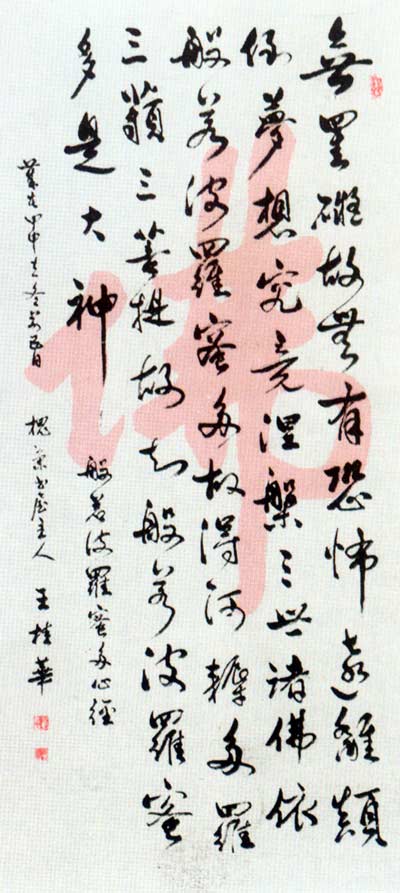 無罣礙故無有恐怖遠離顛
倒夢想究竟涅槃三世諸佛依
般若波羅蜜多故得阿耨多羅
三藐三菩提故知般若波羅蜜
多是大神
般若波羅蜜多心經
歲在甲申 書屋主人 王桂華
佛